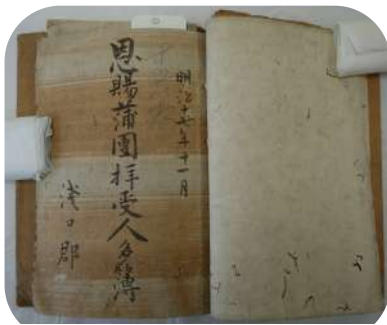 明治十七年十一月
恩賜蒲團拝受人名簿
浅口郡